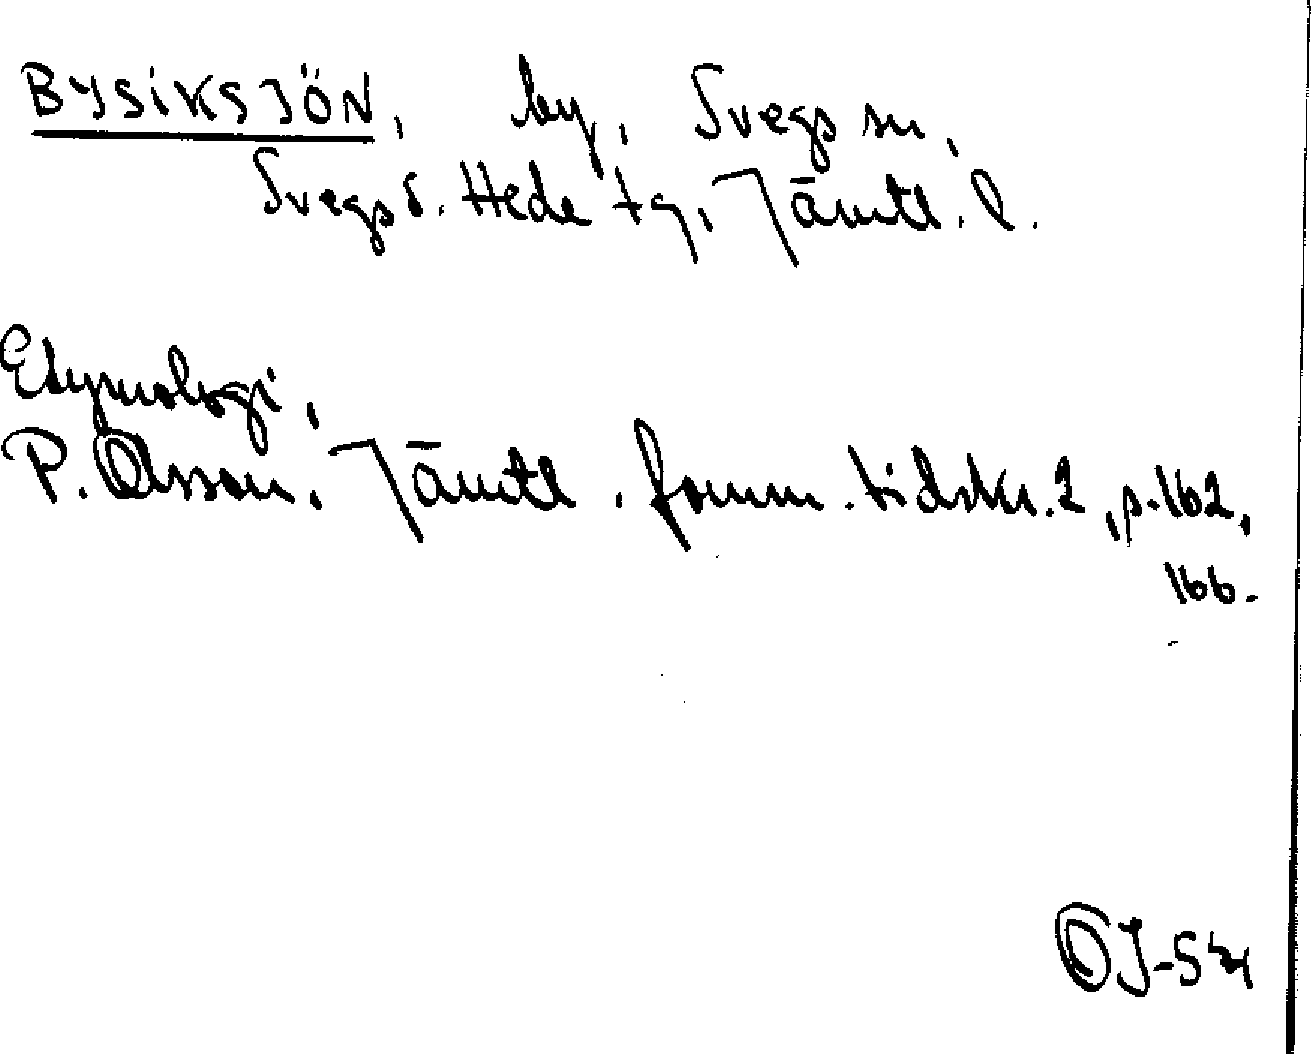 BYSIKSJÖN, by, Svegs sn,
Svegs o. Hede tg, Jämtl. l.
Etymologi,
P. Olsson. Jämtl. fornm. tidskr. 2, p. 162,
166.